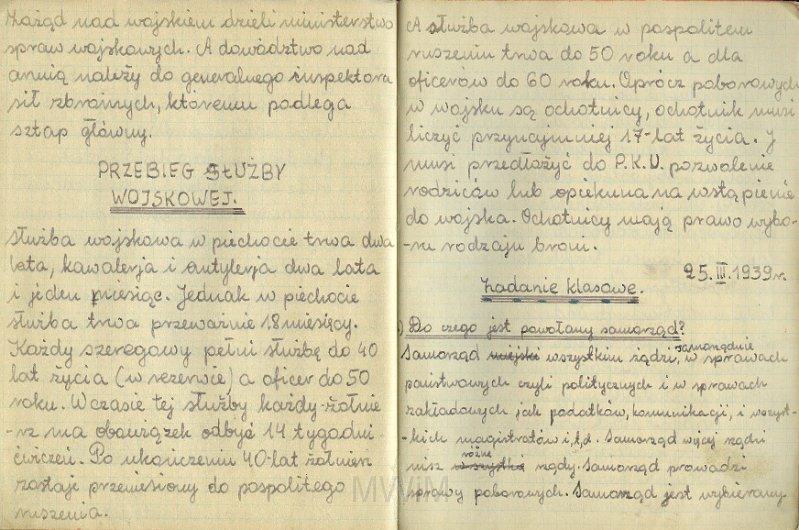 Zarząd nad wojskiem dzieli ministerstwo
spraw wojskowych. A dowództwo nad
armią należy do generalnego inspektora
sił zbrojnych, któremu podlega
sztap główny.
PRZEBIEG SŁUŻBY
WOJSKOWEJ.
Służba wojskowa w piechocie trwa dwa
lata, kawalerja i artylerja dwa lata
i jeden miesiąc. Jednak w piechocie
służba trwa przeważnie 18 miesięcy.
Każdy szeregowy pełni służbę do 40
lat życia (w rezerwie) a oficer do 50
roku. W czasie tej służby każdy żołnie-
-rz ma obowiązek odbyć 14 tygodni
ćwiczeń. Po ukończeniu 40-lat żołnierz
zostaje przeniesiony do pospolitego
ruszenia.
A służba wojskowa w pospolitem
ruszeniu trwa do 50 roku a dla
oficerów do 60 roku. Oprócz poborowych
w wojsku są ochotnicy, ochotnik musi
liczyć przynajmniej 17-lat życia. I
musi przedłożyć do P.K.U. pozwolenie
rodziców lub opiekuna na wstąpienie
do wojska. Ochotnicy mają prawo wybo-
-ru rodzaju broni.
25.III.1939r.
Zadanie klasowe.
1) Do czego jest powołany samorząd?
samorządnie
Samorząd miejski wszystkim rządzi, w sprawach
państwowych czyli politycznych i w sprawach
zakładowych jak podatków, komunikacji, i wszyst-
-kich magistratów i.t.d. Samorząd więcej rządzi
różne
niż wszystkie rządy. Samorząd prowadzi
sprawy poborowych. Samorząd jest wybierany
MWiM